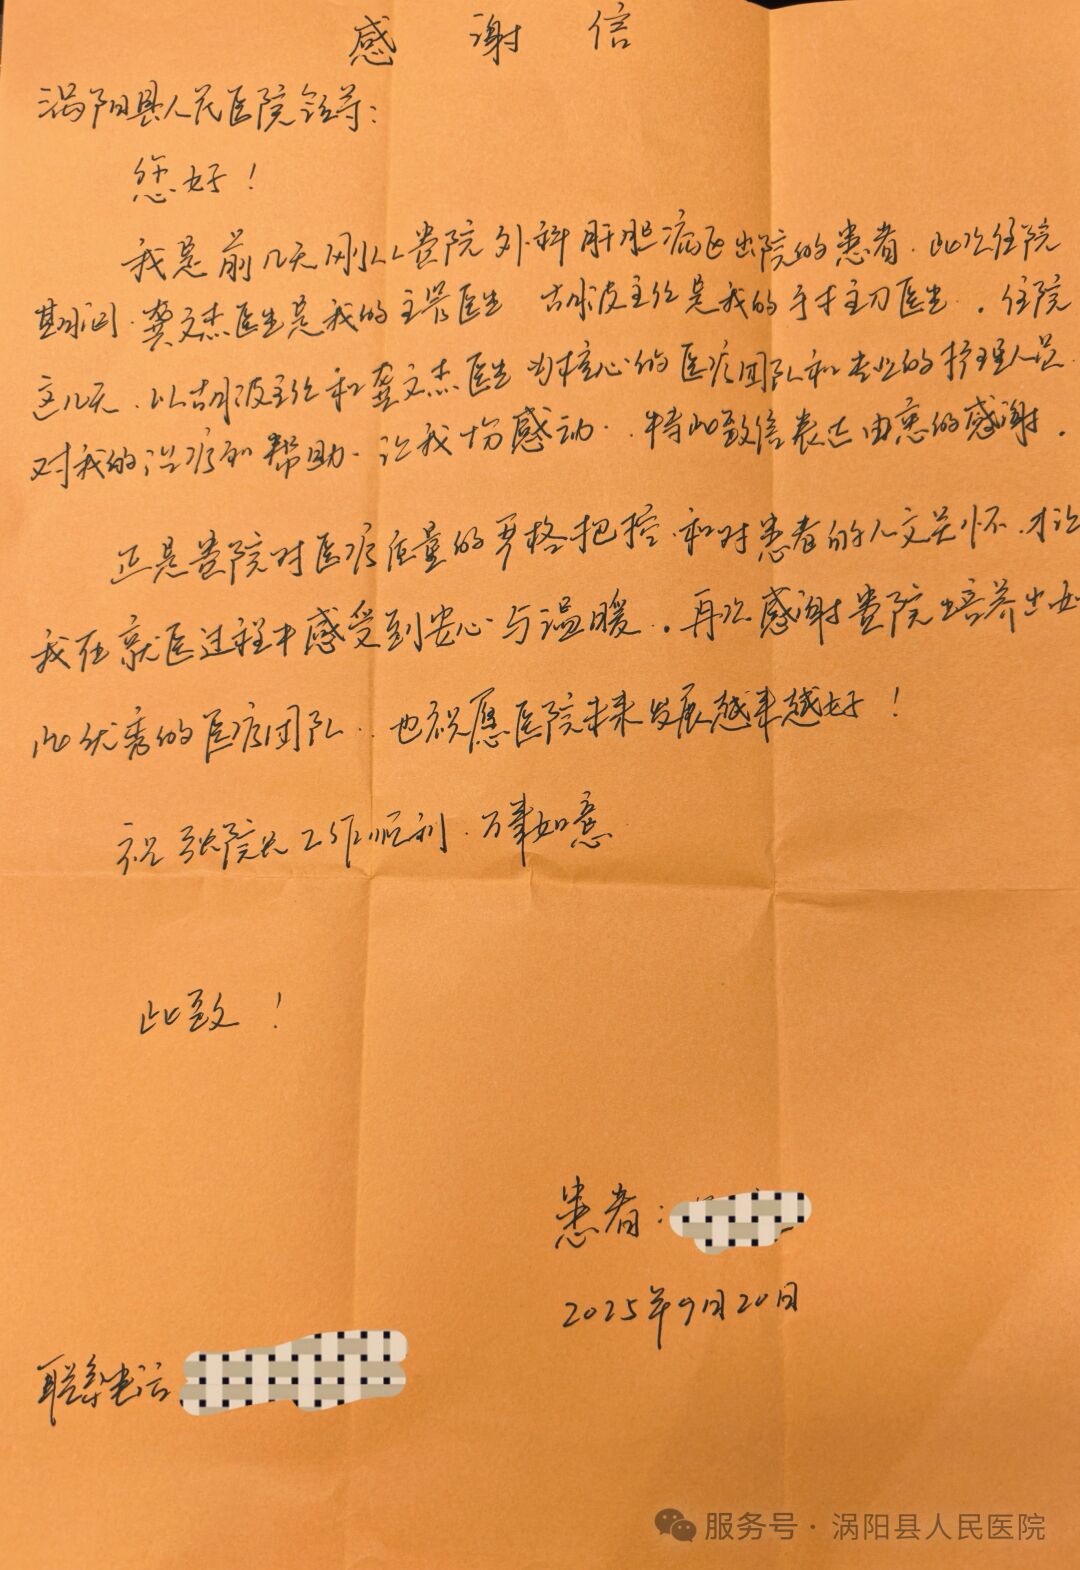 感谢信
涡阳县人民医院领导：
您好！
我是前几天刚从贵院外科肝胆病区出院的患者，此次住院
期间，龚文杰医生是我的主管医生，胡波主任是我的手术主刀医生。住院
这几天，以胡波主任和龚文杰医生为核心的医疗团队和专业的护理人员
对我的治疗和帮助，让我十分感动，特此致信表达由衷的感谢。
正是贵院对医疗质量的严格把控，和对患者的人文关怀，才让
我在就医过程中感受到安心与温暖。再次感谢贵院培养出如
此优秀的医疗团队，也祝愿医院未来发展越来越好！
祝张院长工作顺利，万事如意
此致！
患者：
2025年9月20日
联系电话
服务号·涡阳县人民医院